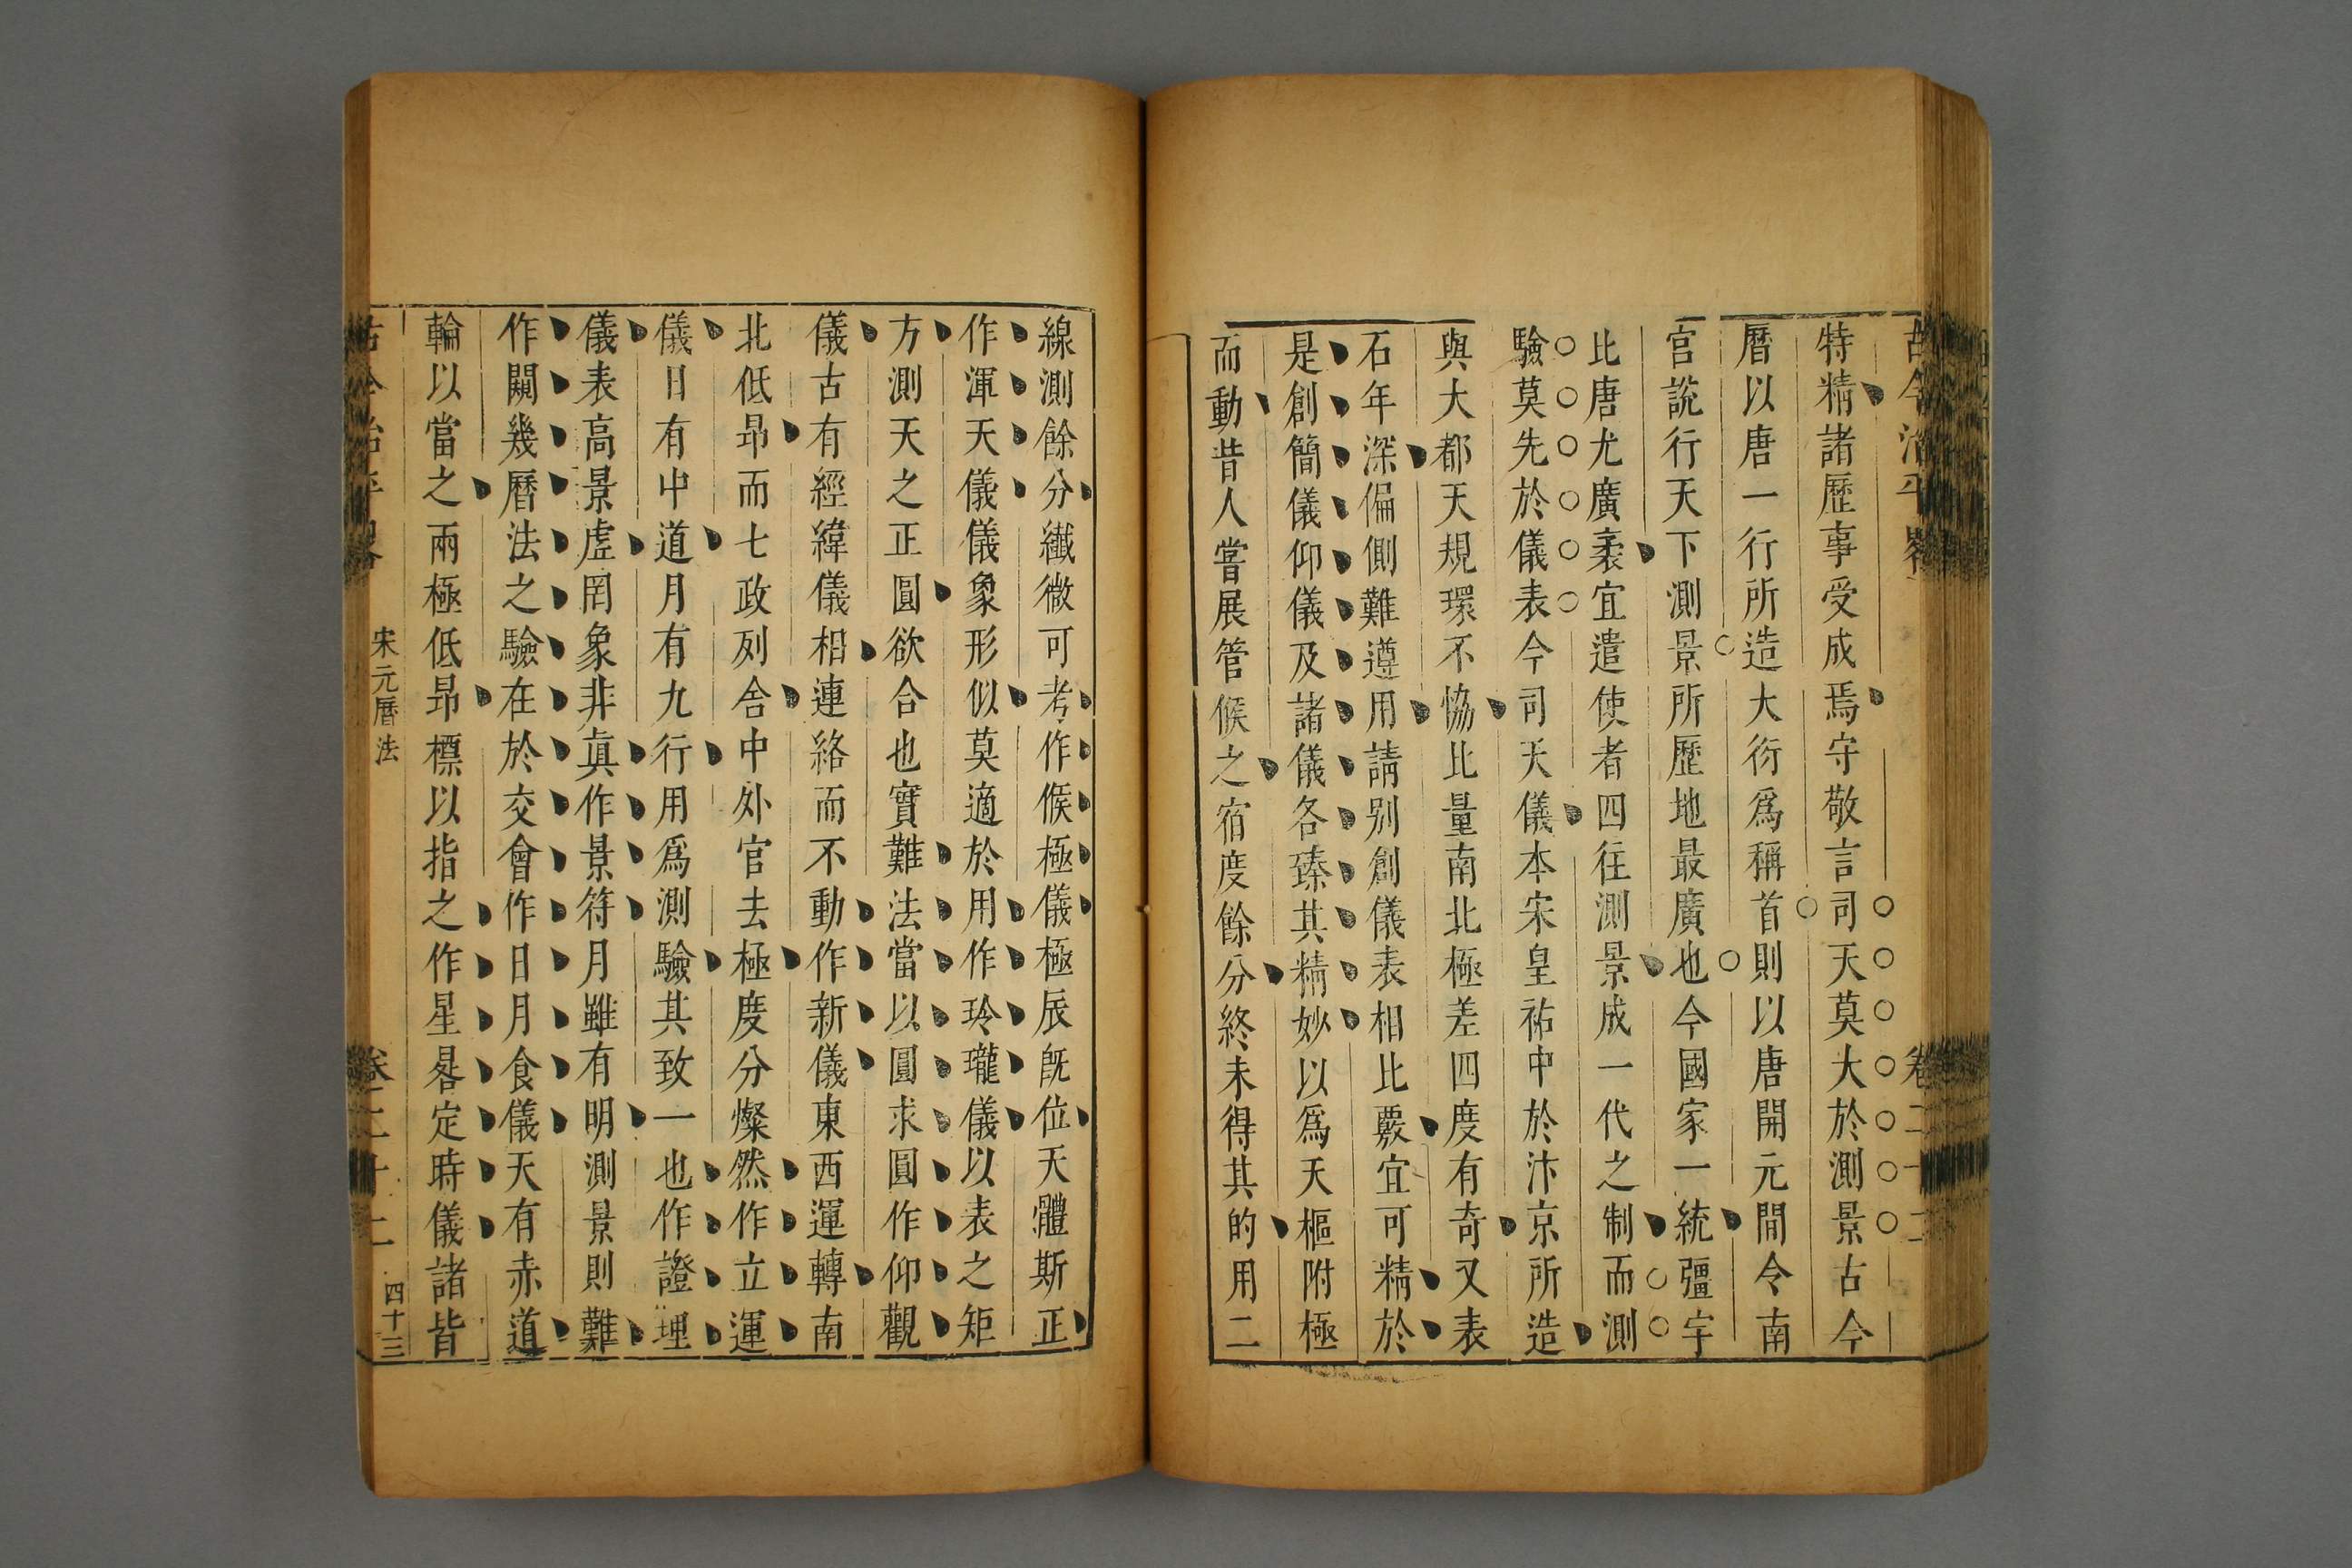 古今治平畧
卷二十二
特精諸歷事受成焉守敬言司天莫大於測景古今
曆以唐一行所造大衍爲稱首則以唐開元間令南
宮說行天下測景所歷地最廣也今國家一統彊宇
比唐尤廣袤宜遣使者四往測景成一代之制而測
驗莫先於儀表今司天儀本宋皇祐中於汴京所造
與大都天規環不恊比量南北極差四度有奇又表
石年深偏側難遵用請别創儀表相比覈宜可精於
是創簡儀仰儀及諸儀各臻其精妙以爲天樞附極
而動昔人嘗展管候之宿度餘分終未得其的用二
線測餘分纖微可考作候極儀極辰旣位天體斯正
作渾天儀儀象形似莫適於用作玲瓏儀以表之矩
方測天之正圓欲合也實難法當以圓求圓作仰觀
儀古有經緯儀相連絡而不動作新儀東西運轉南
北低昂而七政列舍中外官去極度分燦然作立運
儀日有中道月有九行用爲測驗其致一也作證理
儀表高景虛罔象非眞作景符月雖有明測景則難
作闚幾曆法之驗在於交會作日月食儀天有赤道
輪以當之兩極低昂標以指之作星晷定時儀諸皆
古今治平畧
宋元曆法
卷二十二
四十三